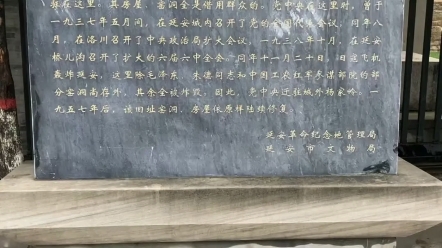 驻在这里，其房屋、窑洞全是借用群众的。党中央在这里时，曾于
一九三七年五月间，在延安城内召开了党的全国代表会议，同年八
月，在洛川召开了中央政治局扩大会议，一九三八年十月，在延安
桥儿沟召开了扩大的六届六中全会。同年十一月二十日，日寇飞机
轰炸延安，这里除毛泽东、朱德同志和中国工农红军参谋部院的部
分窑洞尚存外，其余全被炸毁。因此，党中央迁往城外杨家岭。一
九五七年后，该旧址窑洞、房屋依原样陆续修复。
延安革命纪念馆管理局
延安市文物局